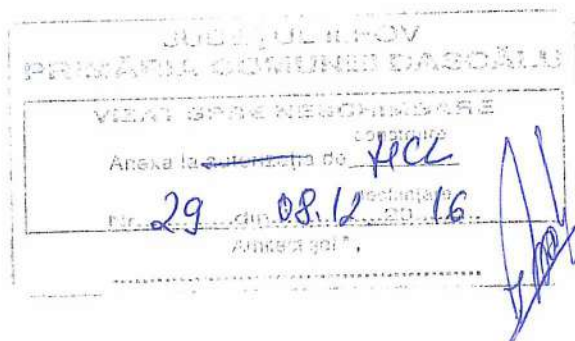 JUDEȚUL ILFOV
PRIMĂRIA COMUNEI DASCĂLU
VIZAT SPRE NESCHIMBARE
construire
Anexa la autorizația de HCL
desființare
Nr. 29 din 08.12 20 16
Arhitect șef,